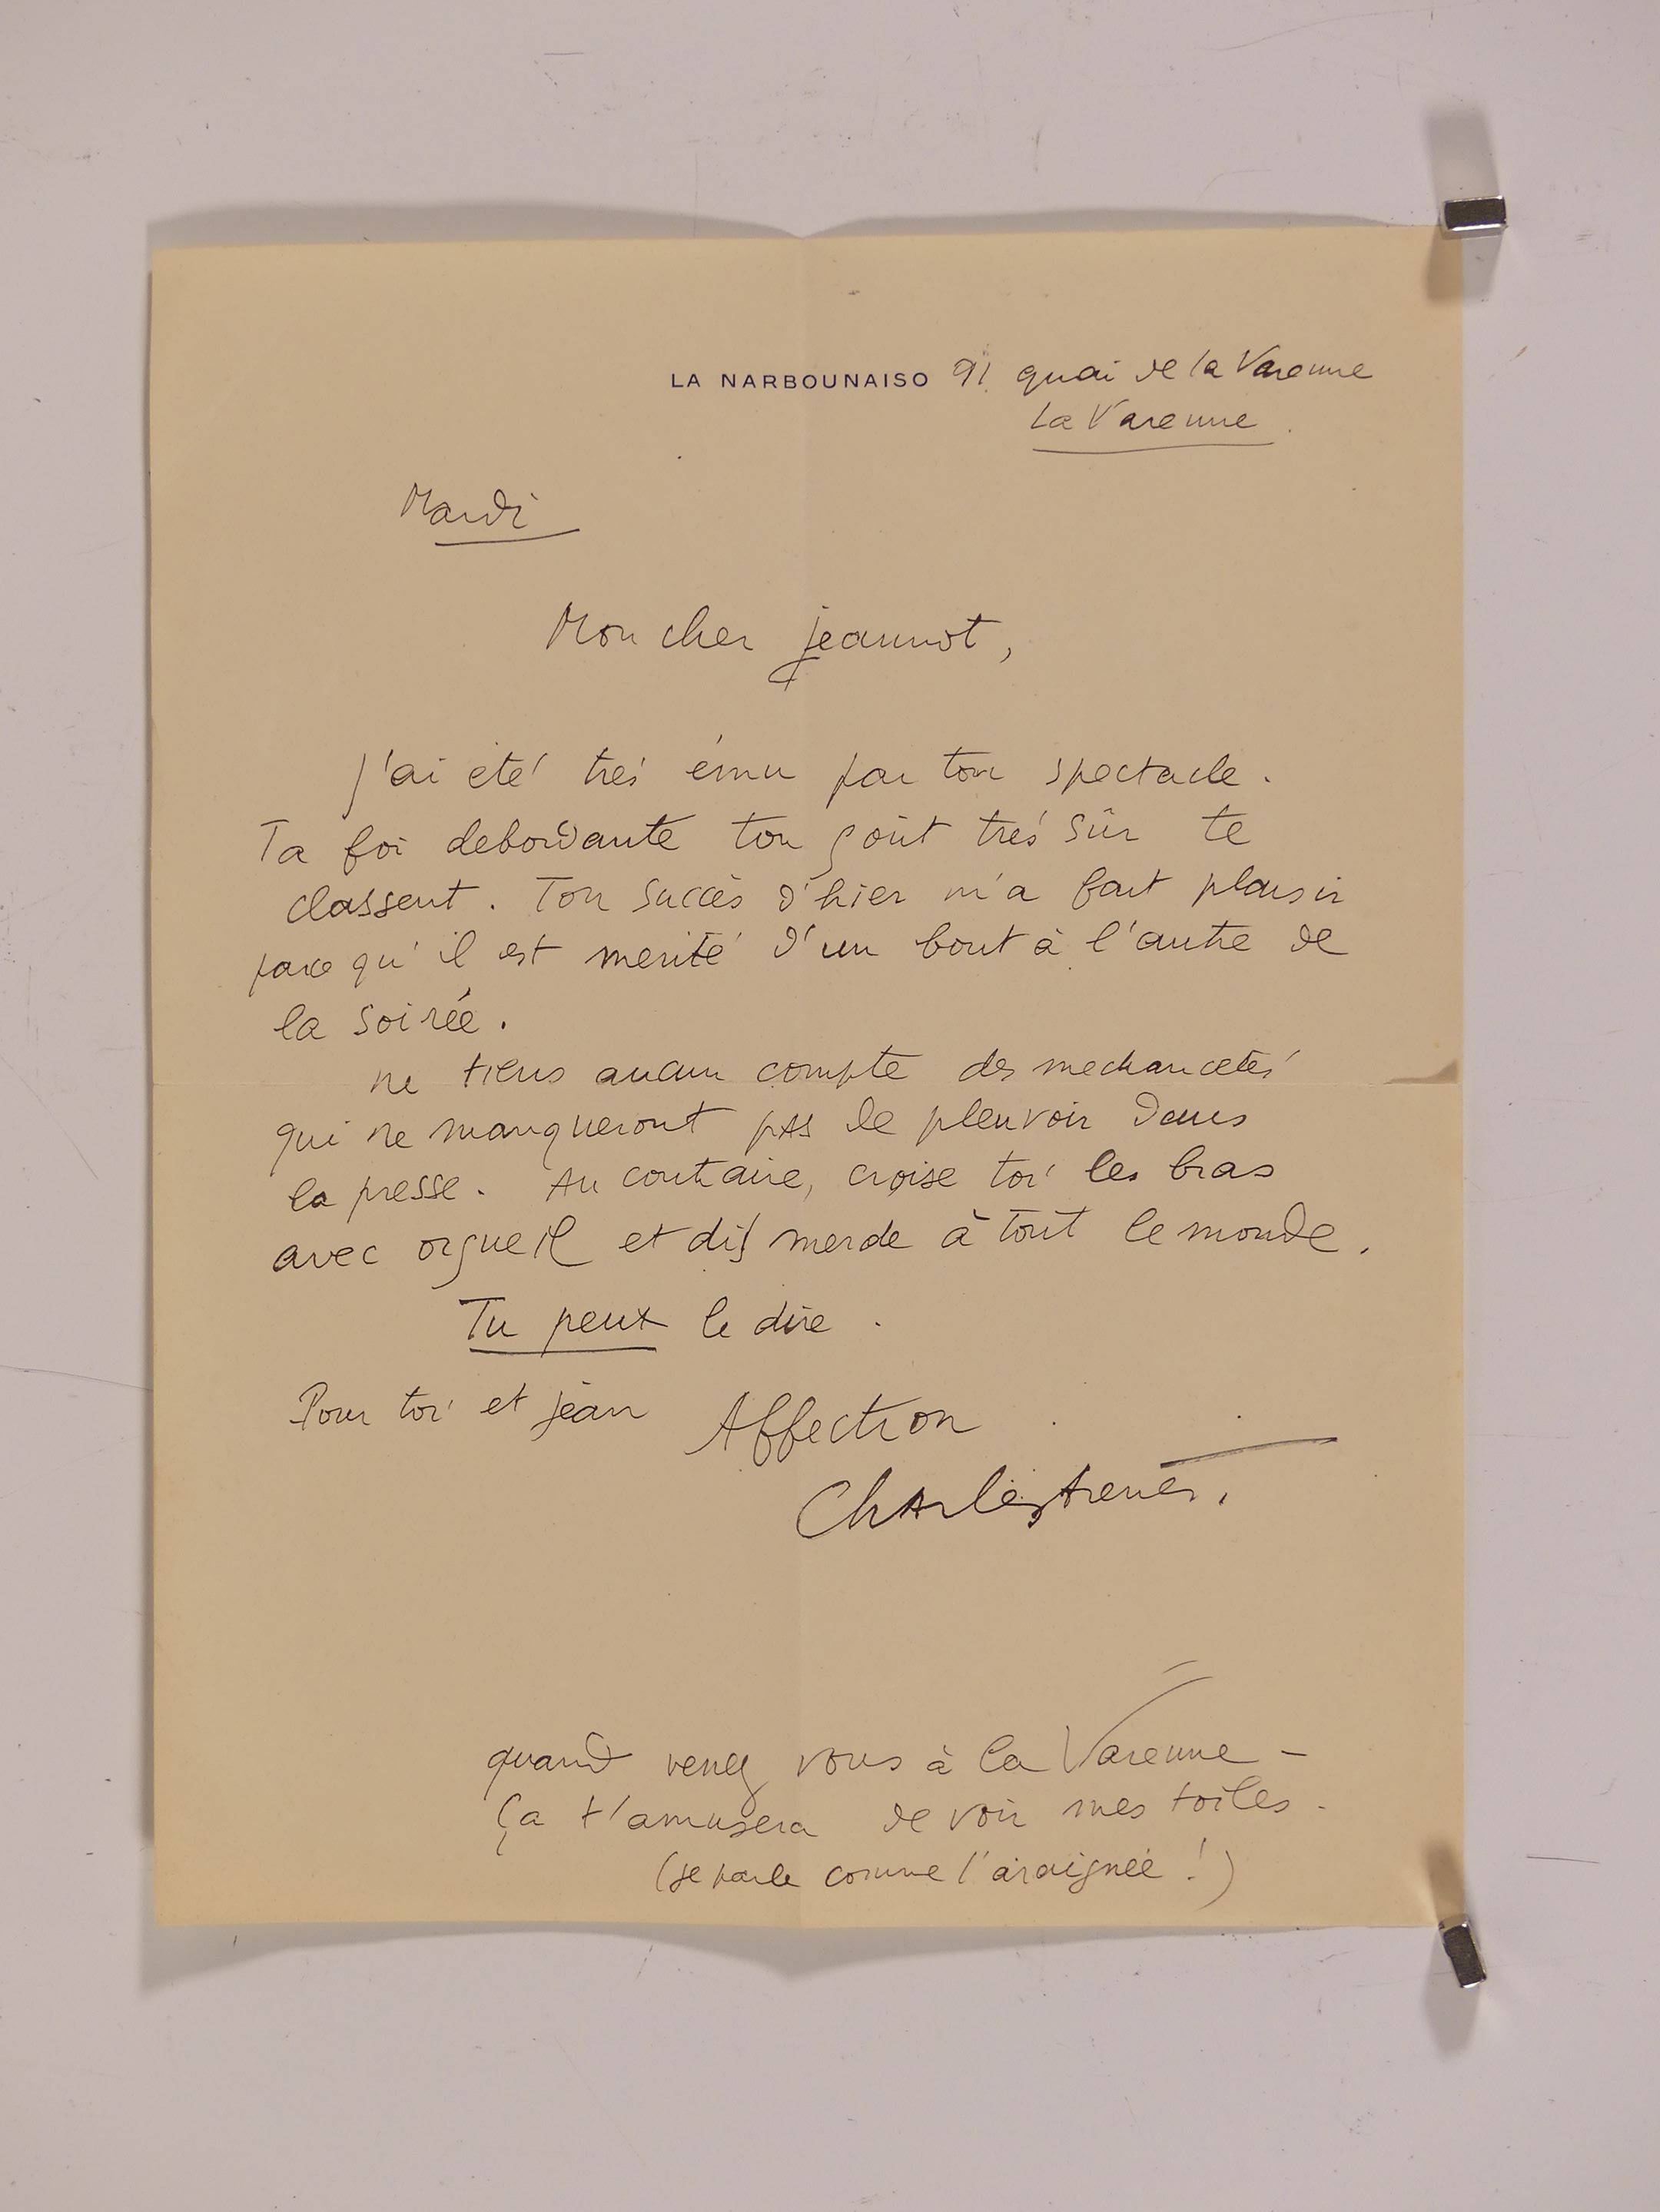 LA NARBOUNAISO 91 quai de la Varenne
La Varenne.
Mardi
Mon cher jeannot,
J'ai eté trés ému par ton spectacle.
Ta foi debordante ton goût trés sûr te
classent. Ton succès d'hier m'a fait plaisir
parce qu'il est merité d'un bout à l'autre de
la soirée.
ne tiens aucun compte des mechancetés
qui ne manqueront pas de pleuvoir dans
la presse. Au contraire, croise toi les bras
avec orgueil et dis merde à tout le monde.
Tu peux le dire.
Pour toi et jean Affection
Charles trenet.
quand venez vous à La Varenne -
Ça t'amusera de voir mes toiles.
(je parle comme l'araignée !)